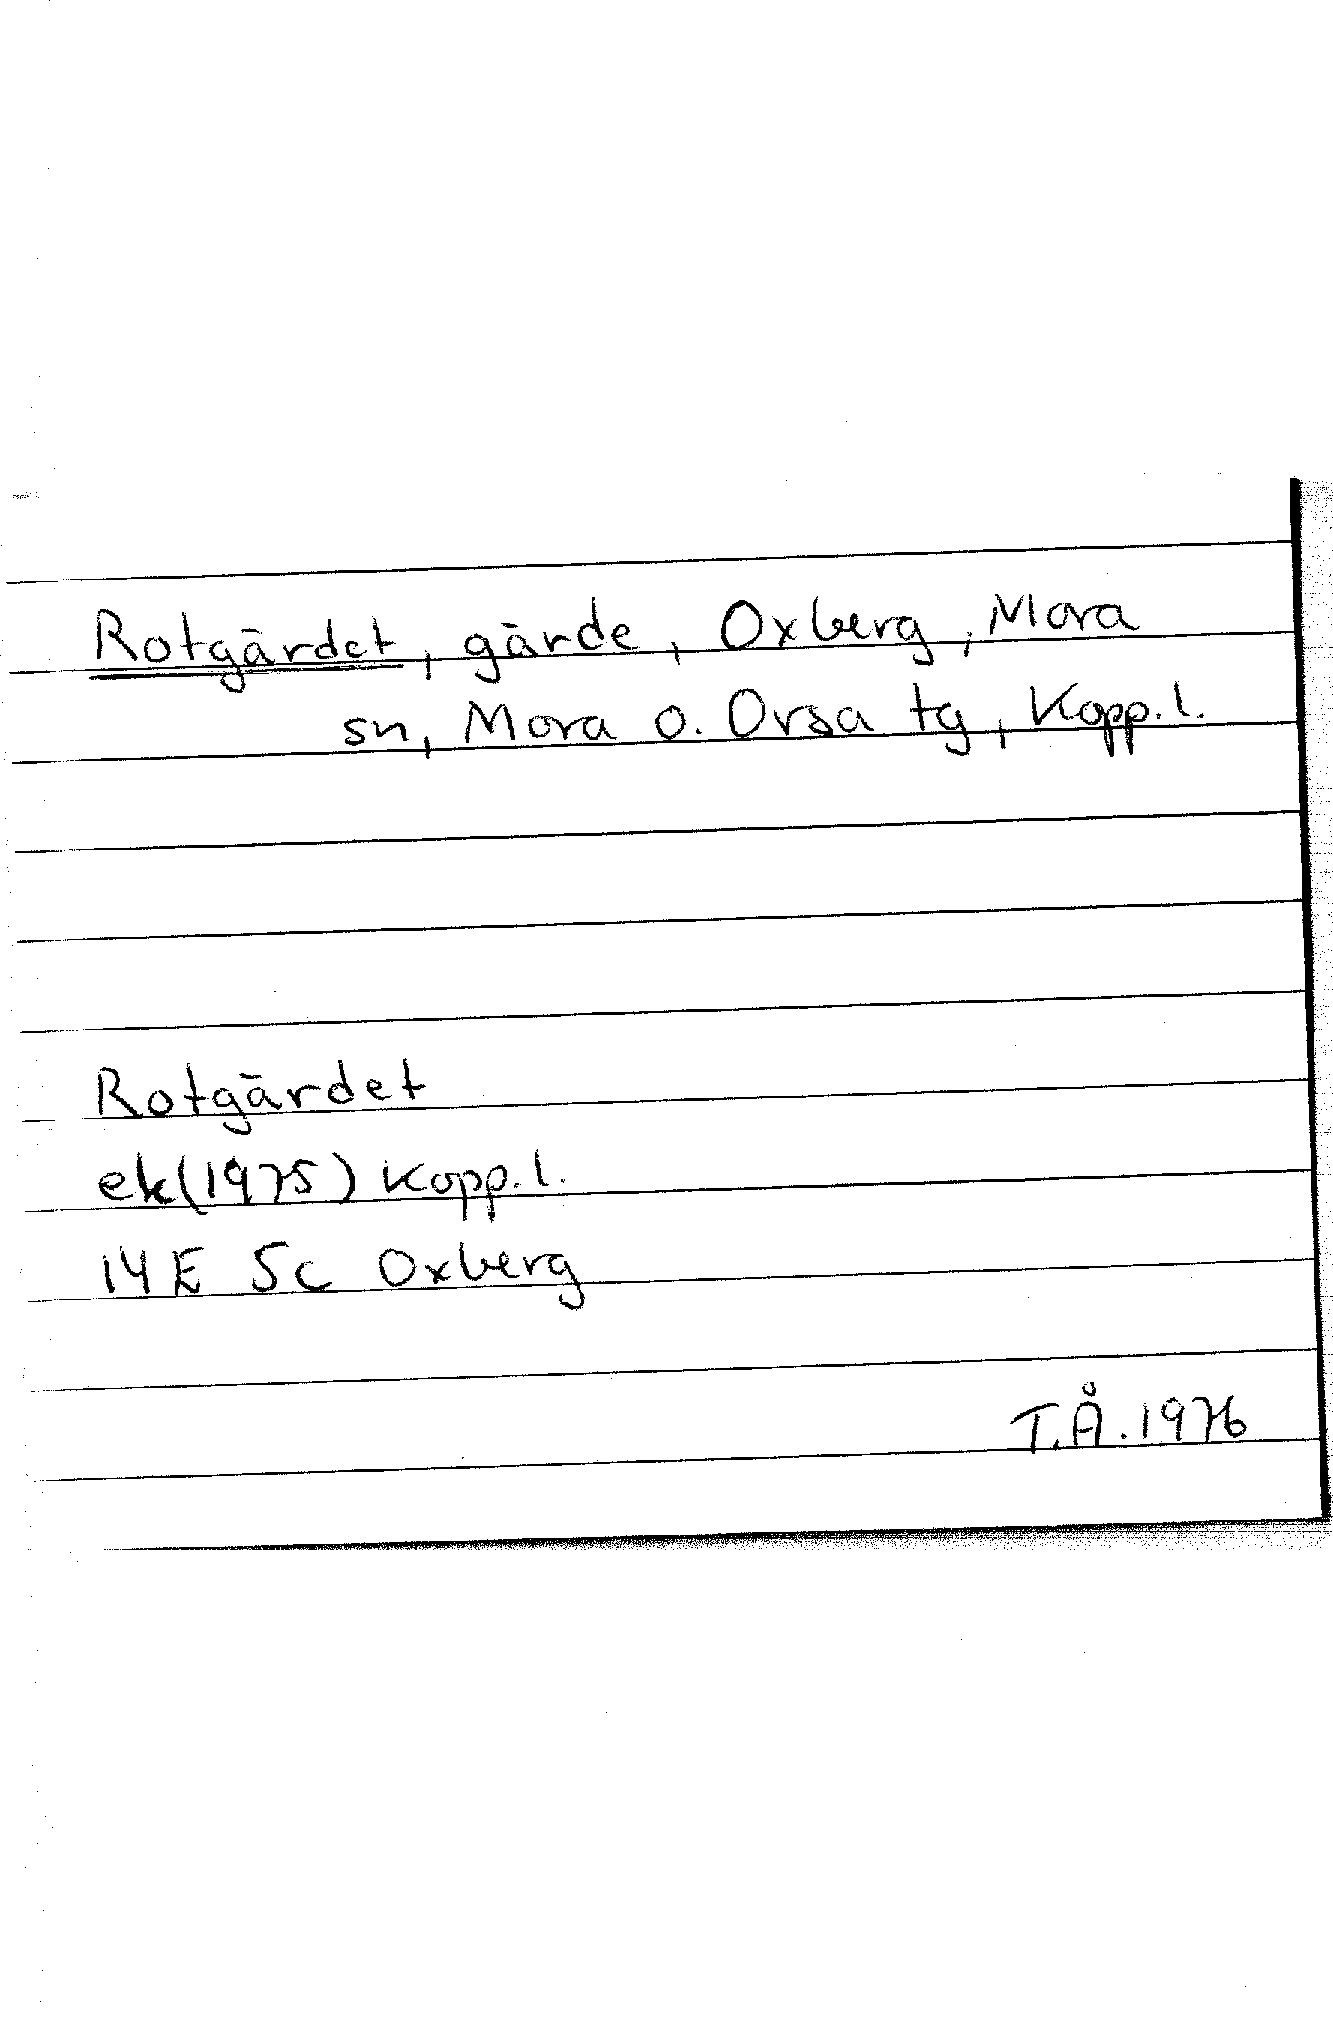 Rotgärdet, gärde, Oxberg, Mora
sn, Mora o. Orsa tg, Kopp.l.
Rotgärdet
ek(1975) Kopp.l.
14E 5c Oxberg
T.Å.1976